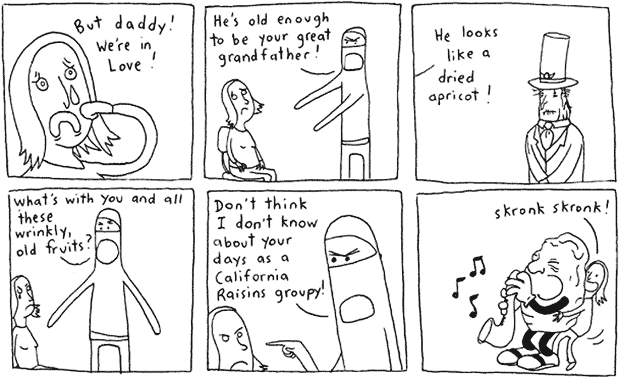 But daddy!
We're in
Love!
He's old enough
to be your great
grandfather!
He looks
like a
dried
apricot!
What's with you and all
these
wrinkly,
old fruits?
Don't think
I don't know
about your
days as a
California
Raisins groupy!
skronk skronk!